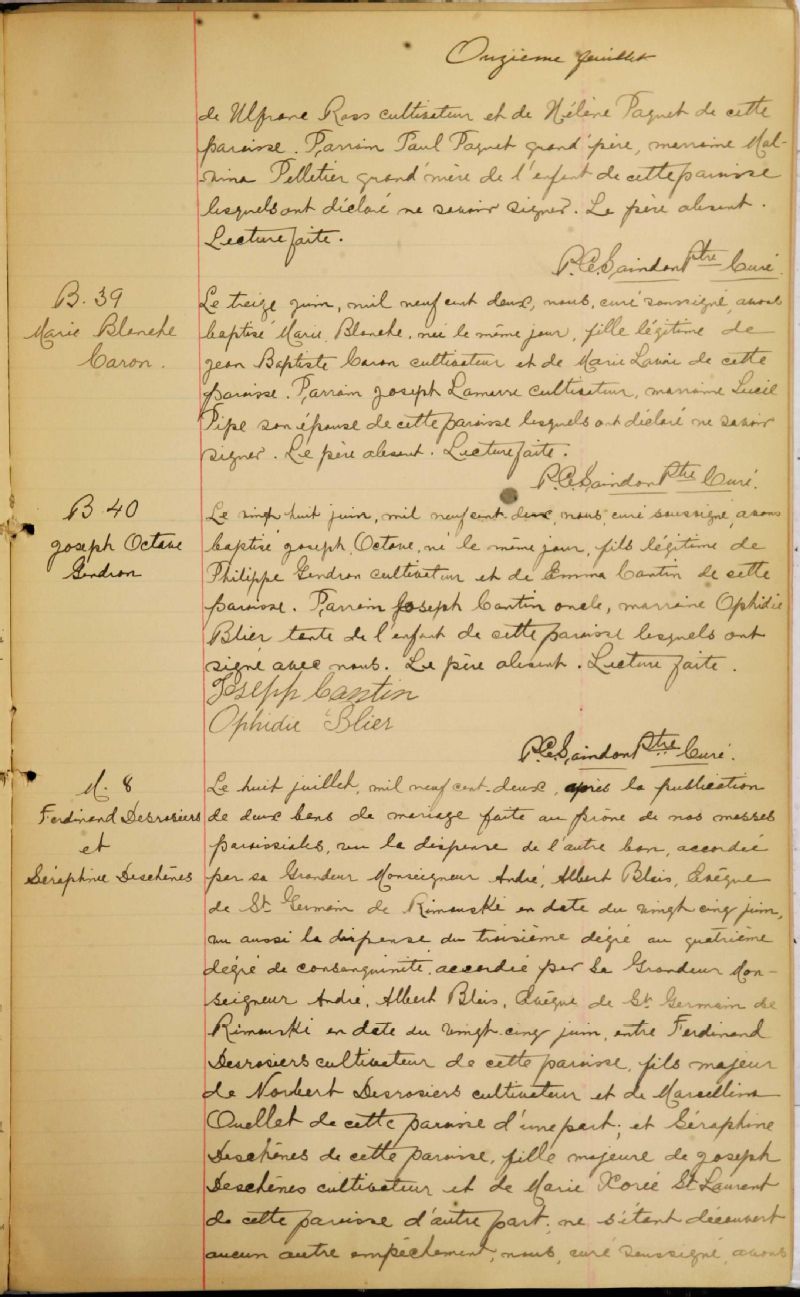 Onzième feuillet
de Ulfranc Ross cultivateur et de Hélène Paquet de cette
paroisse. Parrain Paul Paquet grand'père, marraine Mal-
vina Pelletier grand'mère de l'enfant de cette paroisse
lesquels ont déclaré ne savoir signer. Le père absent.
Lecture faite.
P.C. Saindon Ptre Curé.
B. 39
Marie Blanche
Caron.
Le treize juin, mil neuf cent deux, nous, curé soussigné, avons
baptisé Marie, Blanche, née le même jour, fille légitime de
Jean Baptiste Caron cultivateur et de Marie Lavoie de cette
paroisse. Parrain Joseph Lamarre cultivateur, marraine Lucie
Pipe son épouse de cette paroisse lesquels ont déclaré ne savoir
signer. Le père absent. Lecture faite.
P.C. Saindon Ptre Curé.
B 40
Joseph Octave
Gendron
Le vingt huit juin, mil neuf cent-deux, nous, curé soussigné, avons
baptisé Joseph, Octave, né le même jour, fils légitime de
Philippe Gendron cultivateur et de Emma Cantin de cette
paroisse. Parrain Joseph Cantin oncle, marraine Ophidie
Blier tante de l'enfant de cette paroisse lesquels ont
signé avec nous. Le père absent. Lecture faite.
Joseph Cantin
Ophidie Blier
P.C. Saindon Ptre Curé.
M. 8
Ferdinand Desrosiers
et
Séraphine Deschênes
Le huit juillet, mil neuf cent-deux, après la publication
de deux bans de mariage faite au prône de nos messes
paroissiales, vu la dispense de l'autre ban, accordée
par sa Grandeur Monseigneur André, Albert Blais, Evêque
de St Germain de Rimouski en date du vingt cinq juin,
vu aussi la dispense du troisième dégré au quatrième
dégré de consanguinité, accordée par Sa Grandeur Mon-
seigneur André, Albert Blais, Evêque de St Germain de
Rimouski en date du vingt-cinq juin, entre Ferdinand
Desrosiers cultivateur de cette paroisse, fils majeur
de Norbert Desrosiers cultivateur et de Marcellina
Ouellet de cette paroisse d'une part; et Séraphine
Deschênes de cette paroisse, fille majeure de Joseph
Deschênes cultivateur et de Marie St Laurent
de cette paroisse d'autre part; ne s'étant découvert
aucun autre empêchement, nous, curé soussigné, avons